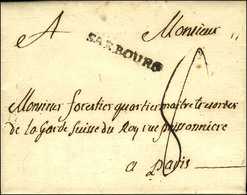 A Monsieur
SARBOURG
Monsieur forestier quartier maitre tresorier
de la Garde Suisse du Roy rue poissonniere
a Paris
8